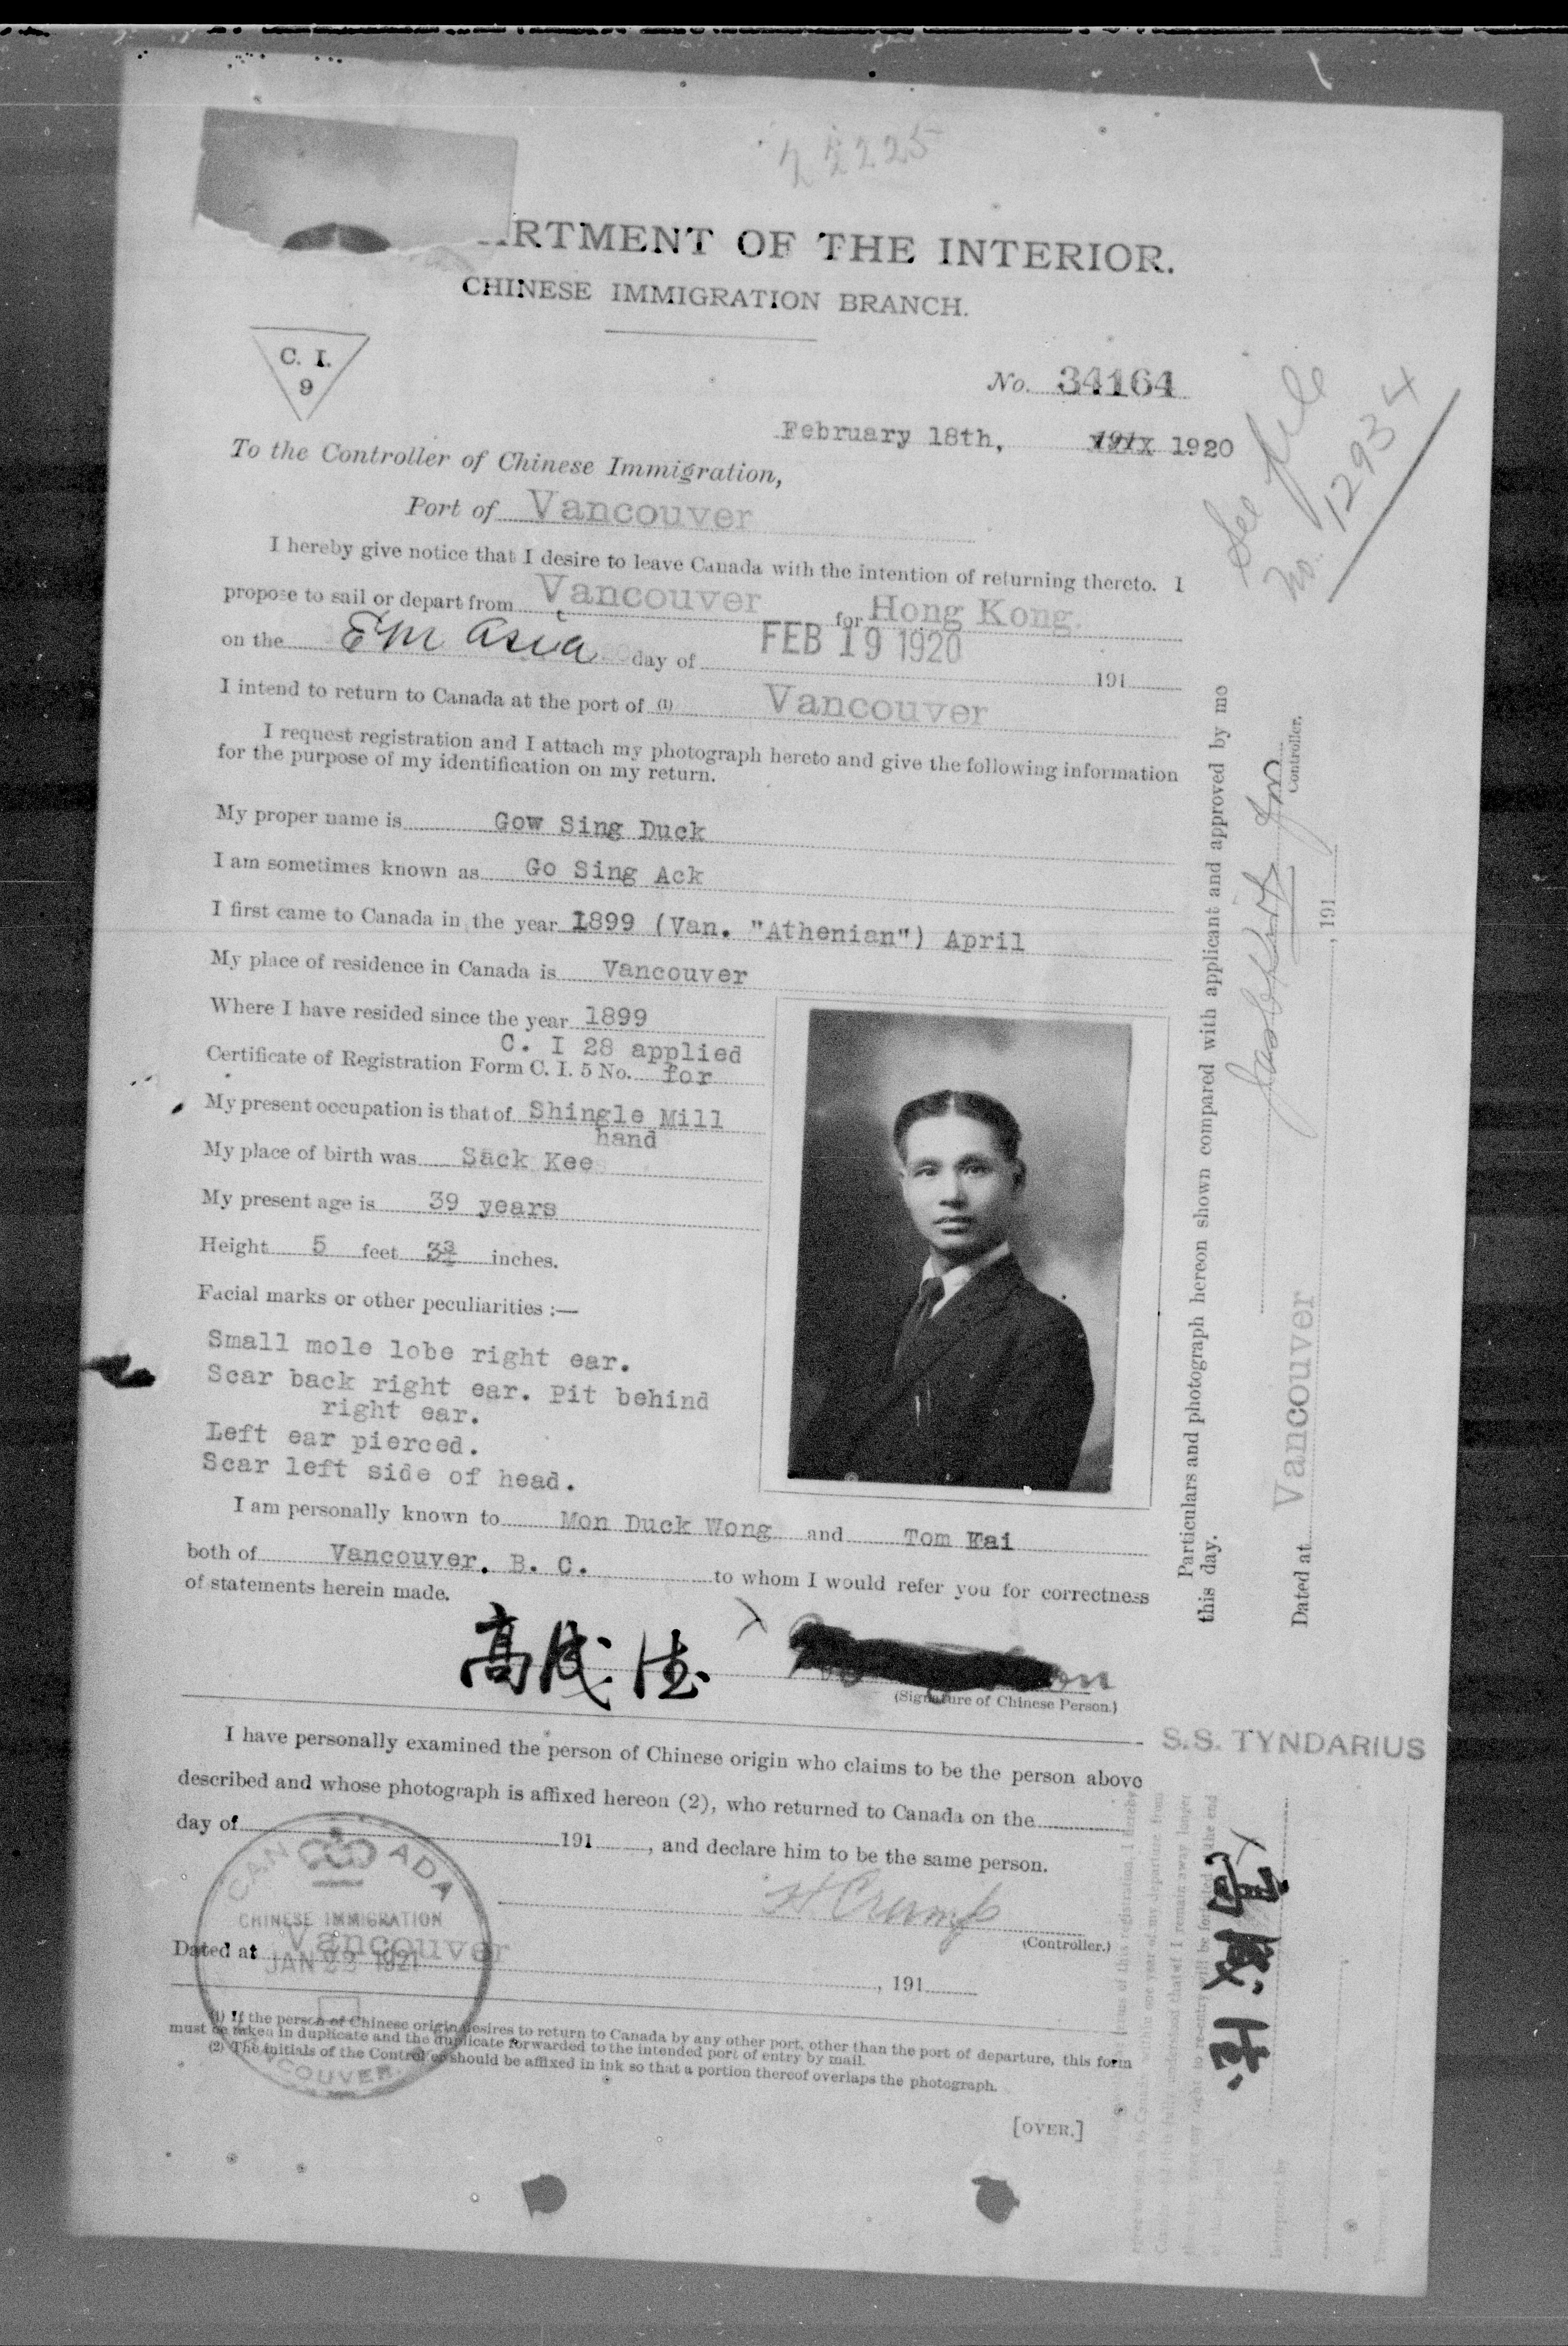 ARTMENT OF THE INTERIOR.
CHINESE IMMIGRATION BRANCH.
C. I.
9
No. 34164
See file
No. 12934
February 18th, 191x 1920
To the Controller of Chinese Immigration,
Port of Vancouver
I hereby give notice that I desire to leave Canada with the intention of returning thereto. I
propose to sail or depart from Vancouver for Hong Kong.
on the Em Asia day of FEB 19 1920 191
I intend to return to Canada at the port of (1) Vancouver
I request registration and I attach my photograph hereto and give the following information
for the purpose of my identification on my return.
My proper name is Gow Sing Duck
I am sometimes known as Go Sing Ack
I first came to Canada in the year 1899 (Van. "Athenian") April
My place of residence in Canada is Vancouver
Where I have resided since the year 1899
C. I 28 applied
Certificate of Registration Form C. I. 5 No. for
My present occupation is that of Shingle Mill
hand
My place of birth was Sack Kee
My present age is 39 years
Height 5 feet 3¾ inches.
Facial marks or other peculiarities :—
Small mole lobe right ear.
Scar back right ear. Pit behind
right ear.
Left ear pierced.
Scar left side of head.
I am personally known to Mon Duck Wong and Tom Kai
both of Vancouver. B. C. to whom I would refer you for correctness
of statements herein made.
高
(Signature of Chinese Person.)
I have personally examined the person of Chinese origin who claims to be the person above
described and whose photograph is affixed hereon (2), who returned to Canada on the
day of 191 , and declare him to be the same person.
H Crump
(Controller.)
Dated at Vancouver , 191
CANADA
CHINESE IMMIGRATION
JAN 1921
VANCOUVER.
(1) If the person of Chinese origin desires to return to Canada by any other port, other than the port of departure, this form
must be taken in duplicate and the duplicate forwarded to the intended port of entry by mail.
(2) The initials of the Controller should be affixed in ink so that a portion thereof overlaps the photograph.
[OVER.]
Particulars and photograph hereon shown compared with applicant and approved by mo
this day.
Controller.
Dated at Vancouver , 191
S.S. TYNDARIUS
高